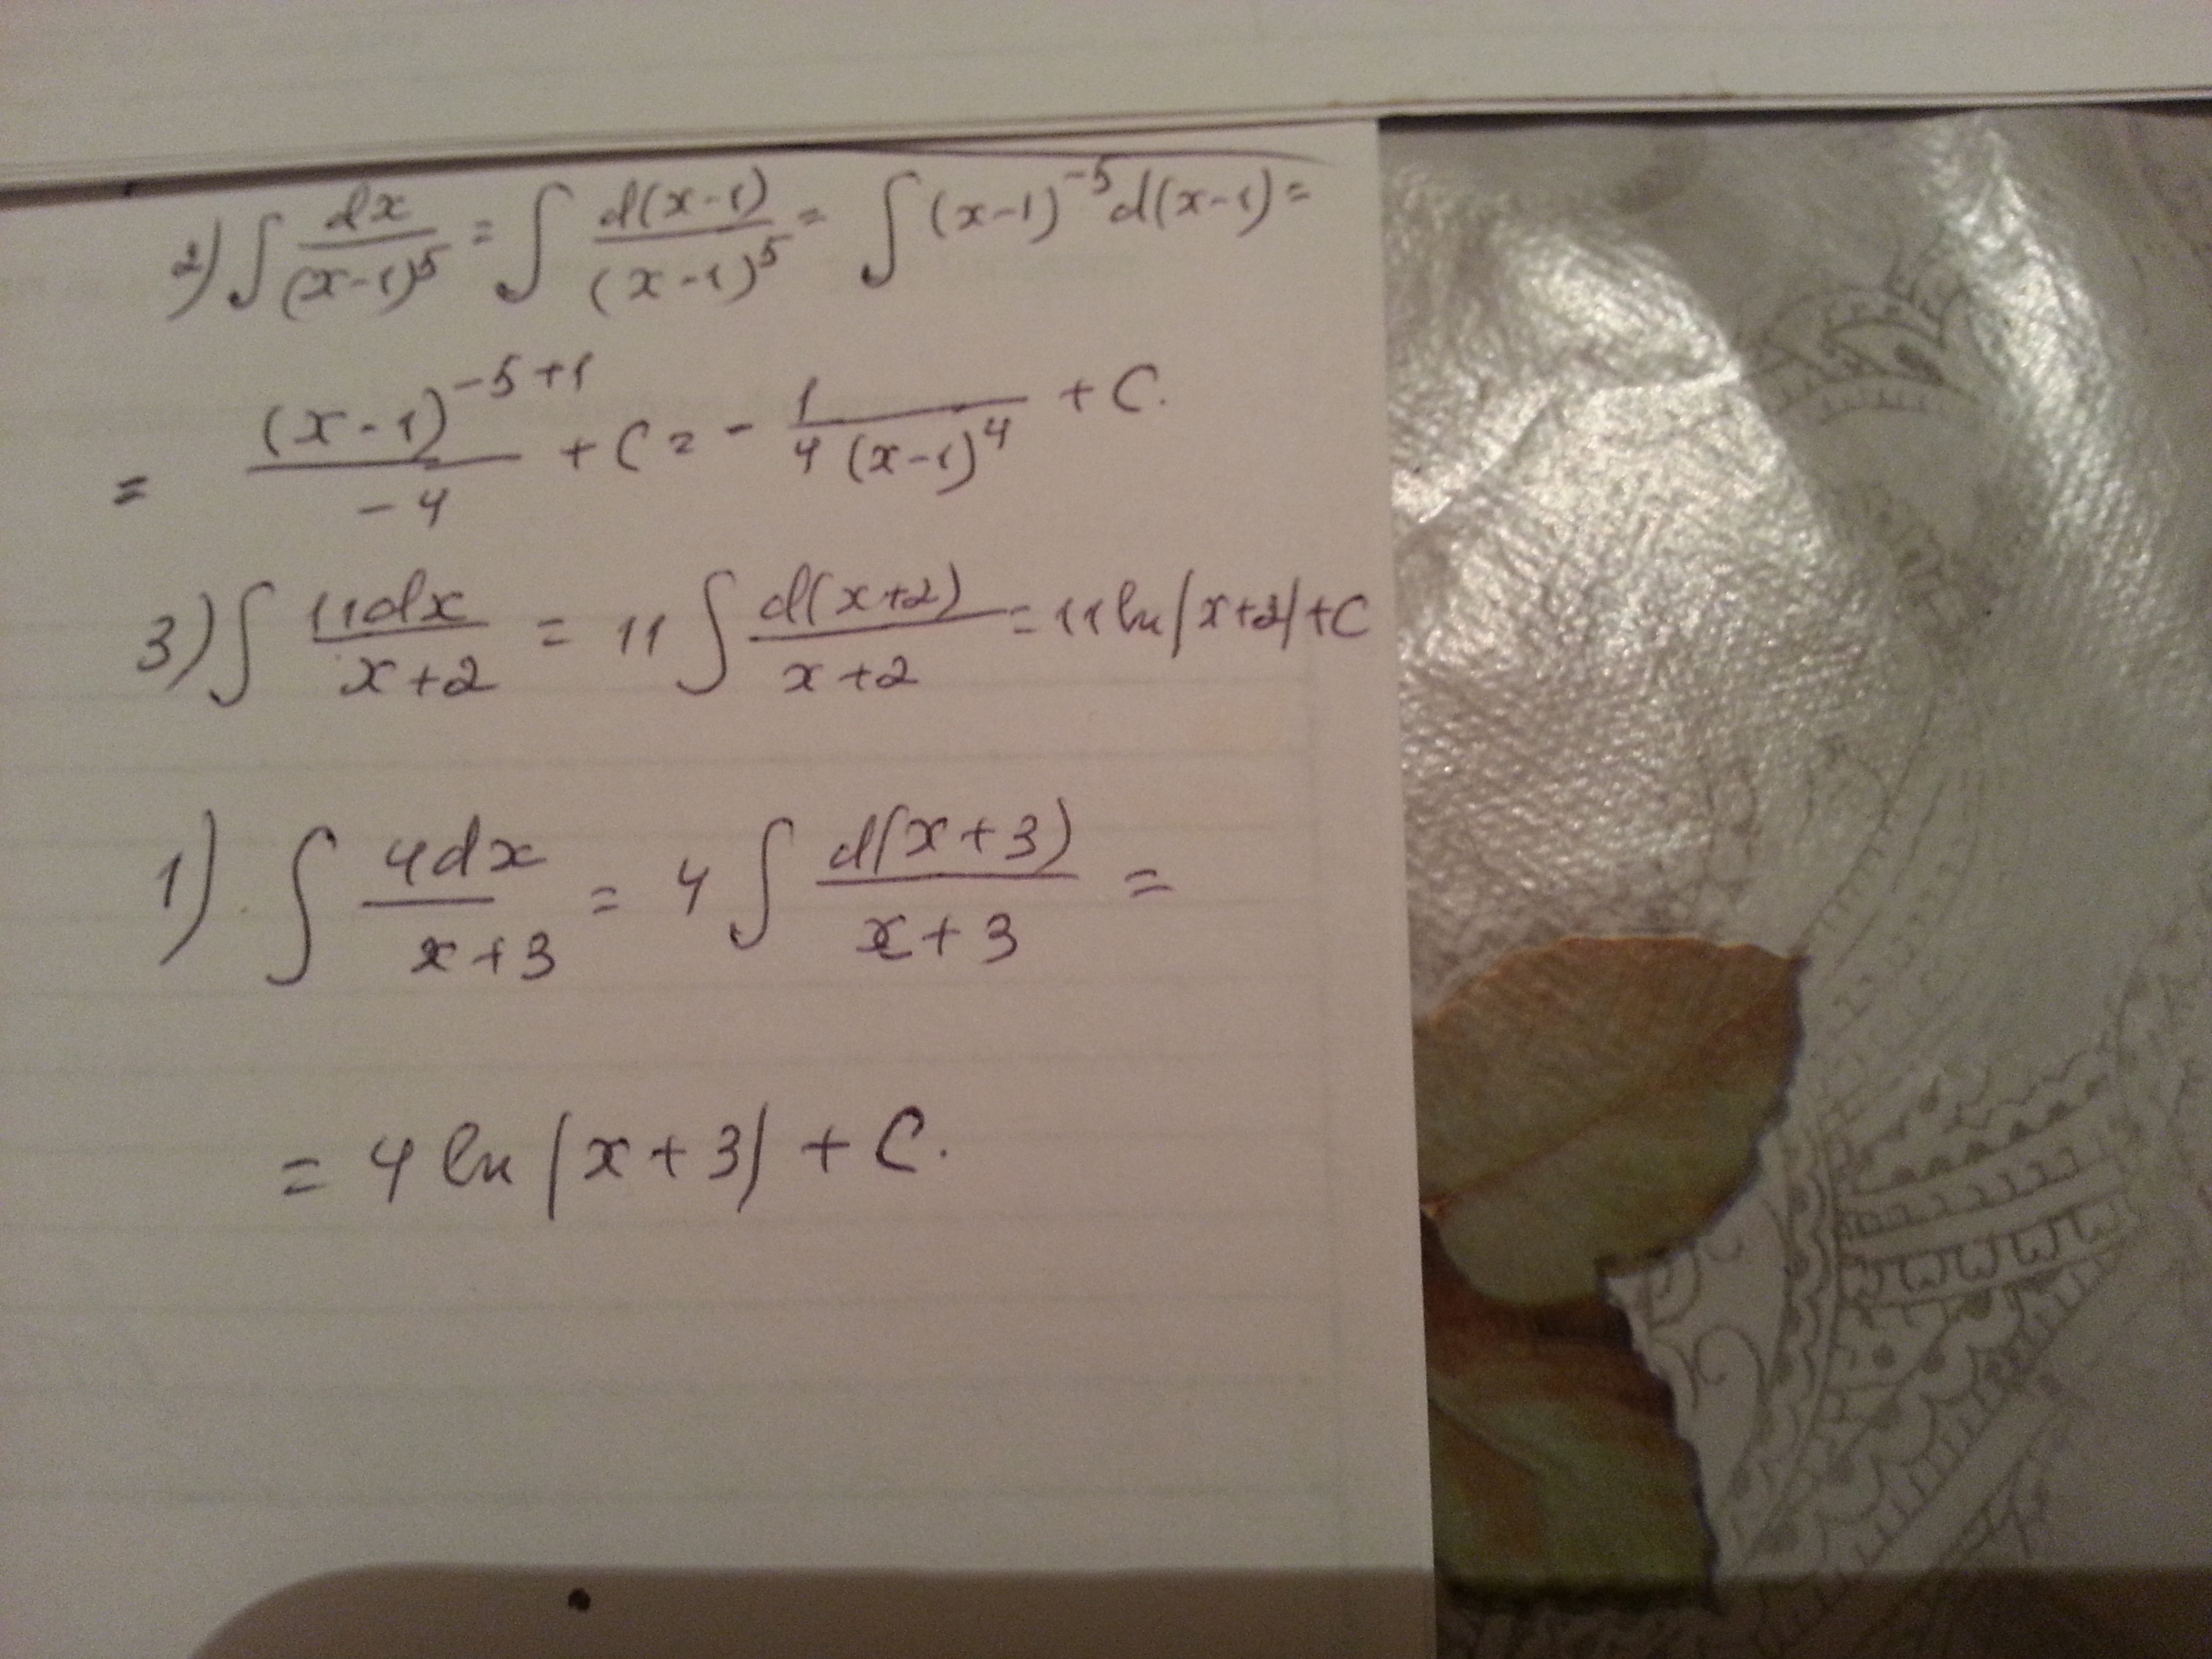 2) ∫ dx/(x-1)^5 = ∫ d(x-1)/(x-1)^5 = ∫ (x-1)^-5 d(x-1) =
= (x-1)^-5+1/-4 + C = - 1/4(x-1)^4 + C.
3) ∫ 11dx/x+2 = 11 ∫ d(x+2)/x+2 = 11 ln|x+2| + C
1) ∫ 4dx/x+3 = 4 ∫ d(x+3)/x+3 =
= 4 ln|x+3| + C.